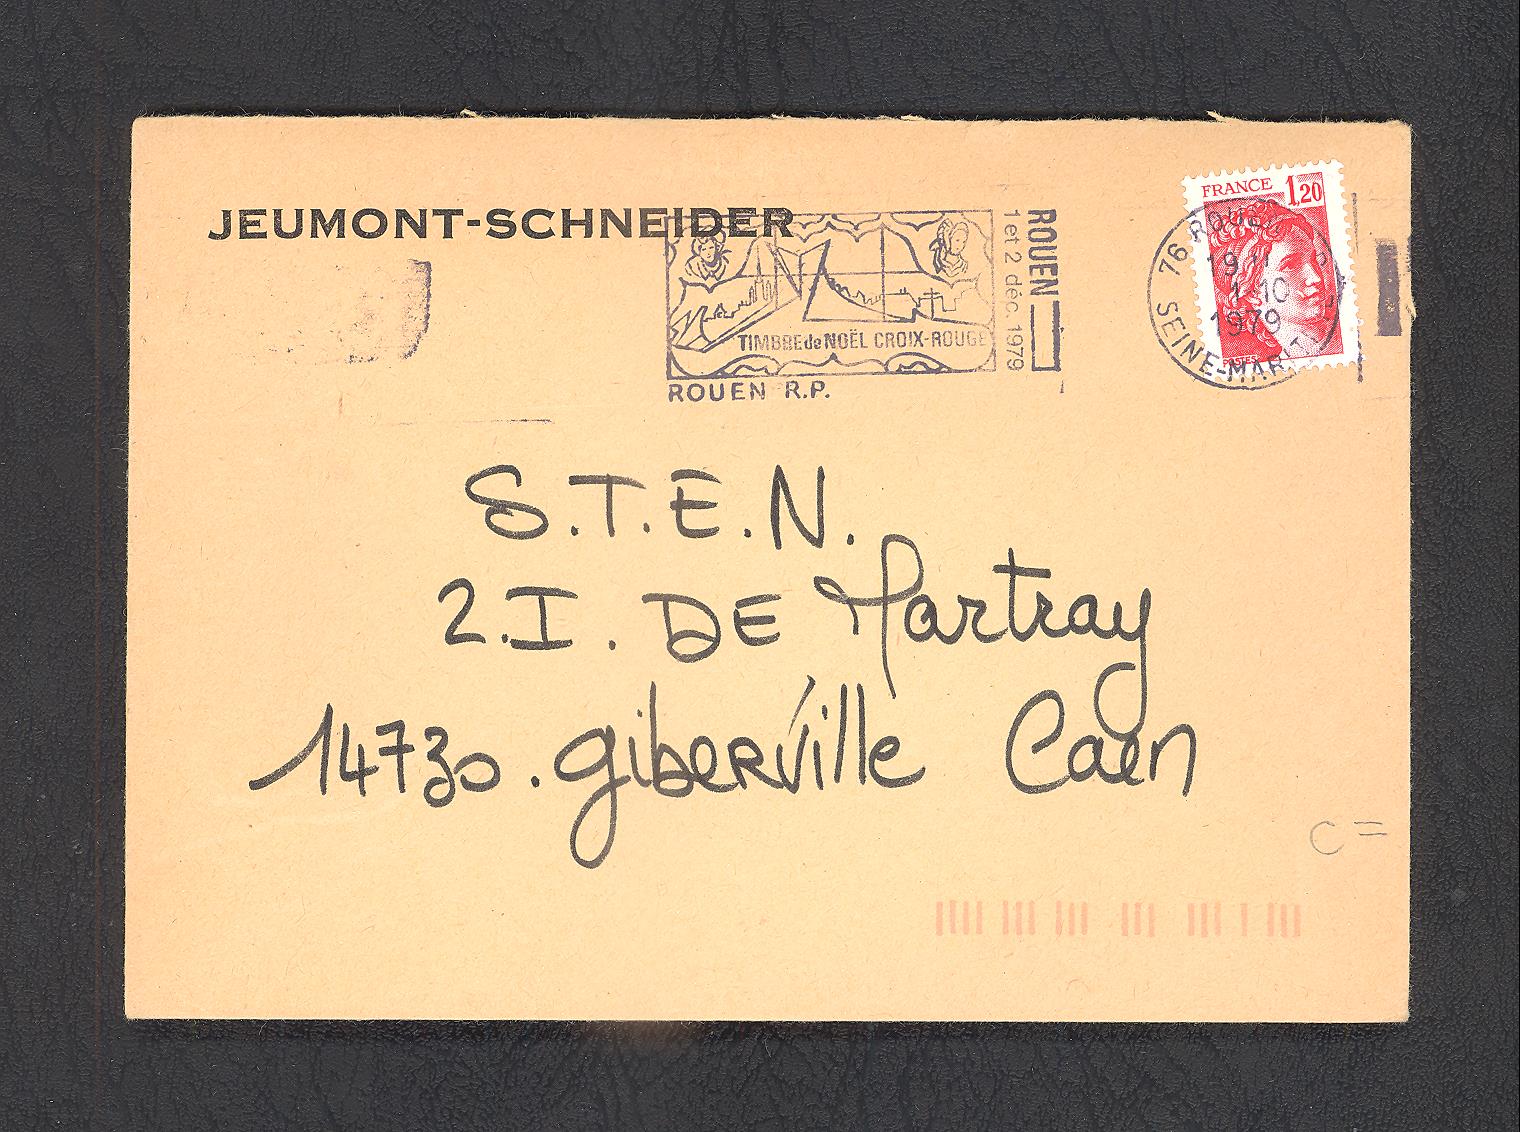 JEUMONT-SCHNEIDER
TIMBRE de NOËL CROIX-ROUGE
ROUEN R.P.
ROUEN
1 et 2 déc. 1979
FRANCE 1,20
POSTES
76 ROUEN
19H
1-10
1979
SEINE-MARIT
S.T.E.N.
2.I. DE Martray
14730. giberville Caen
C =